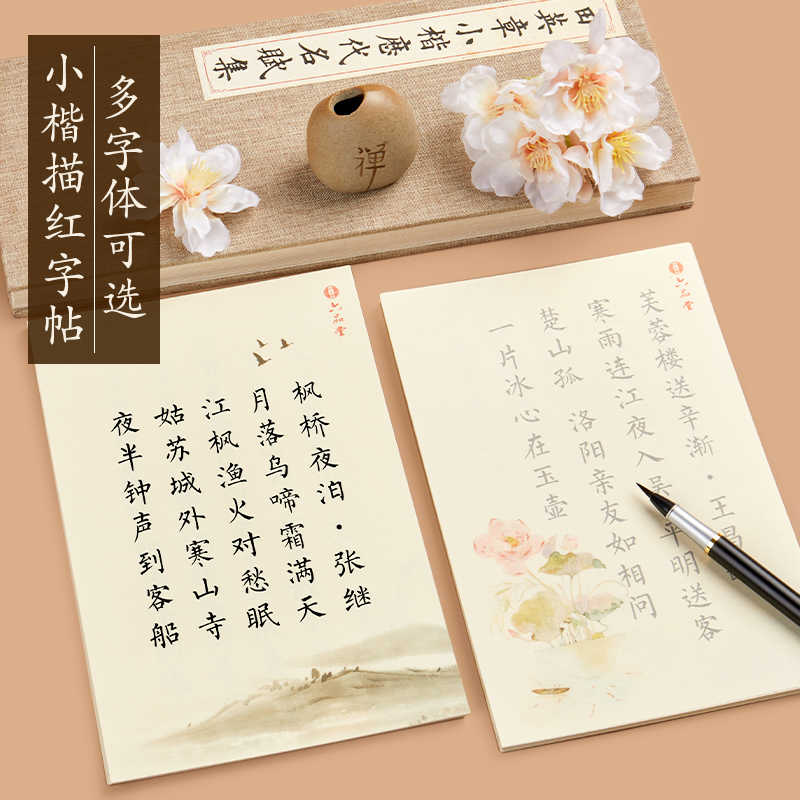 多字体可选
小楷描红字帖
田英章小楷歷代名賦集
禅
六品堂
枫桥夜泊·张继
月落乌啼霜满天
江枫渔火对愁眠
姑苏城外寒山寺
夜半钟声到客船
六品堂
芙蓉楼送辛渐·王昌
寒雨连江夜入吴 平明送客
楚山孤 洛阳亲友如相问
一片冰心在玉壶